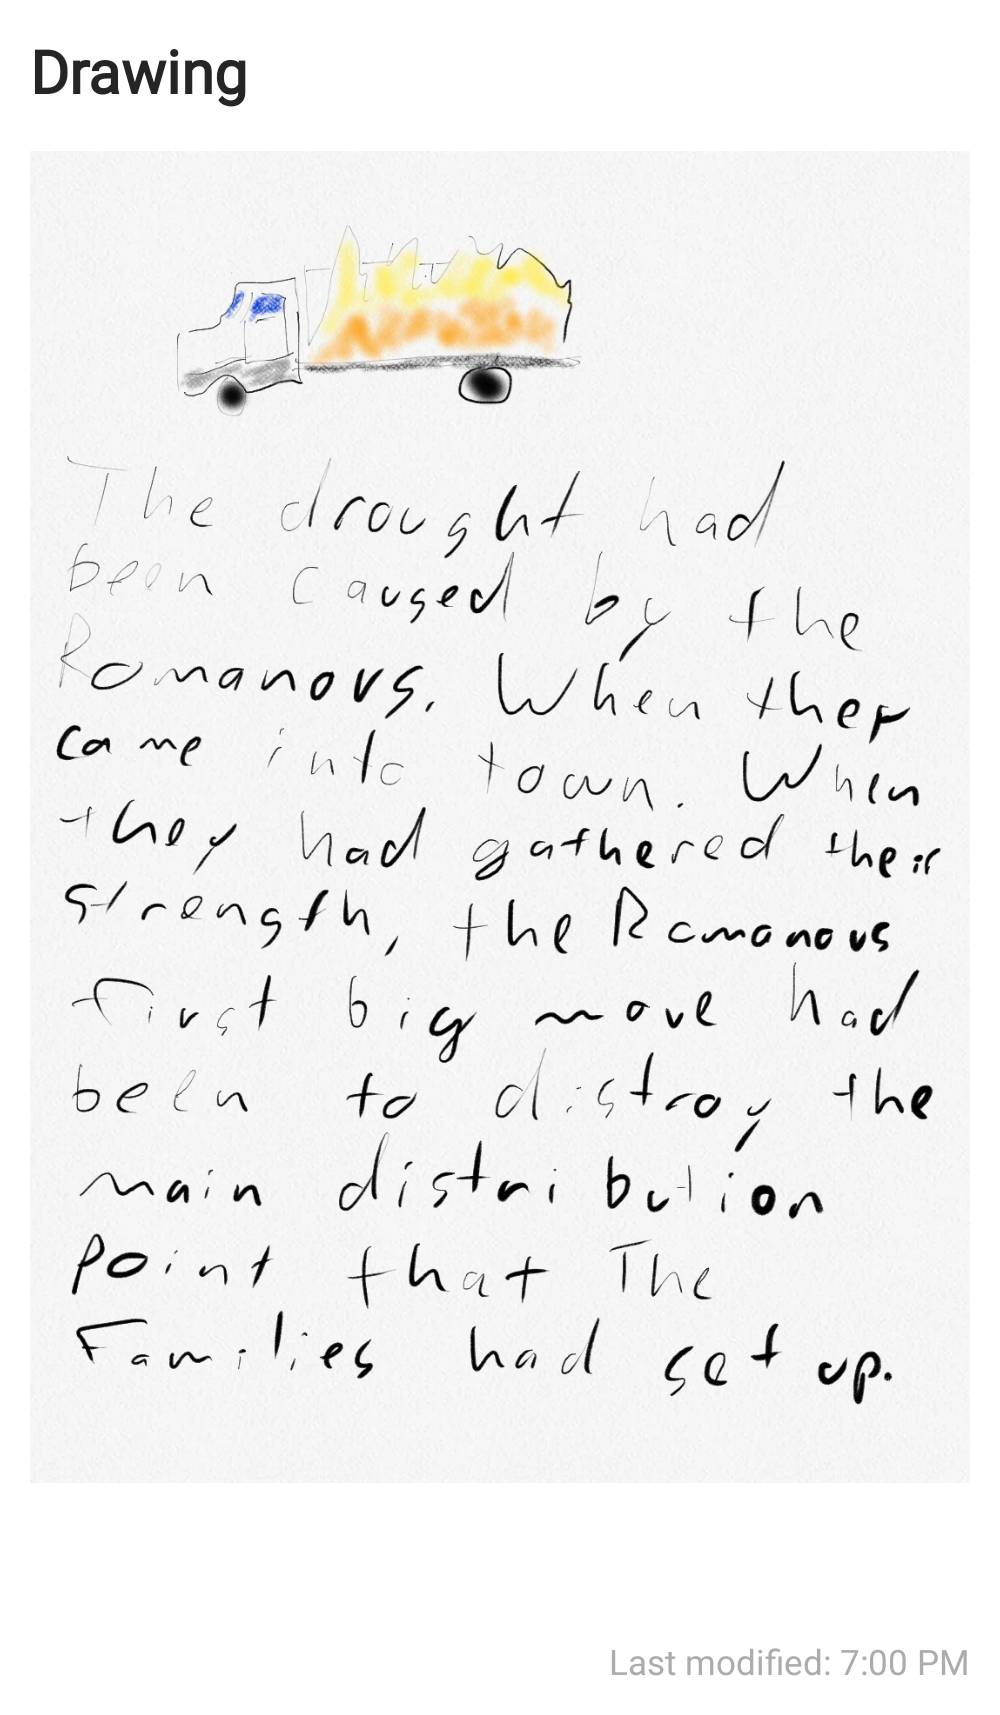 Drawing
The drought had
been caused by the
Romanovs. When they
came into town. When
they had gathered their
strength, the Romanovs
first big move had
been to distroy the
main distribution
point that The
Families had set up.
Last modified: 7:00 PM